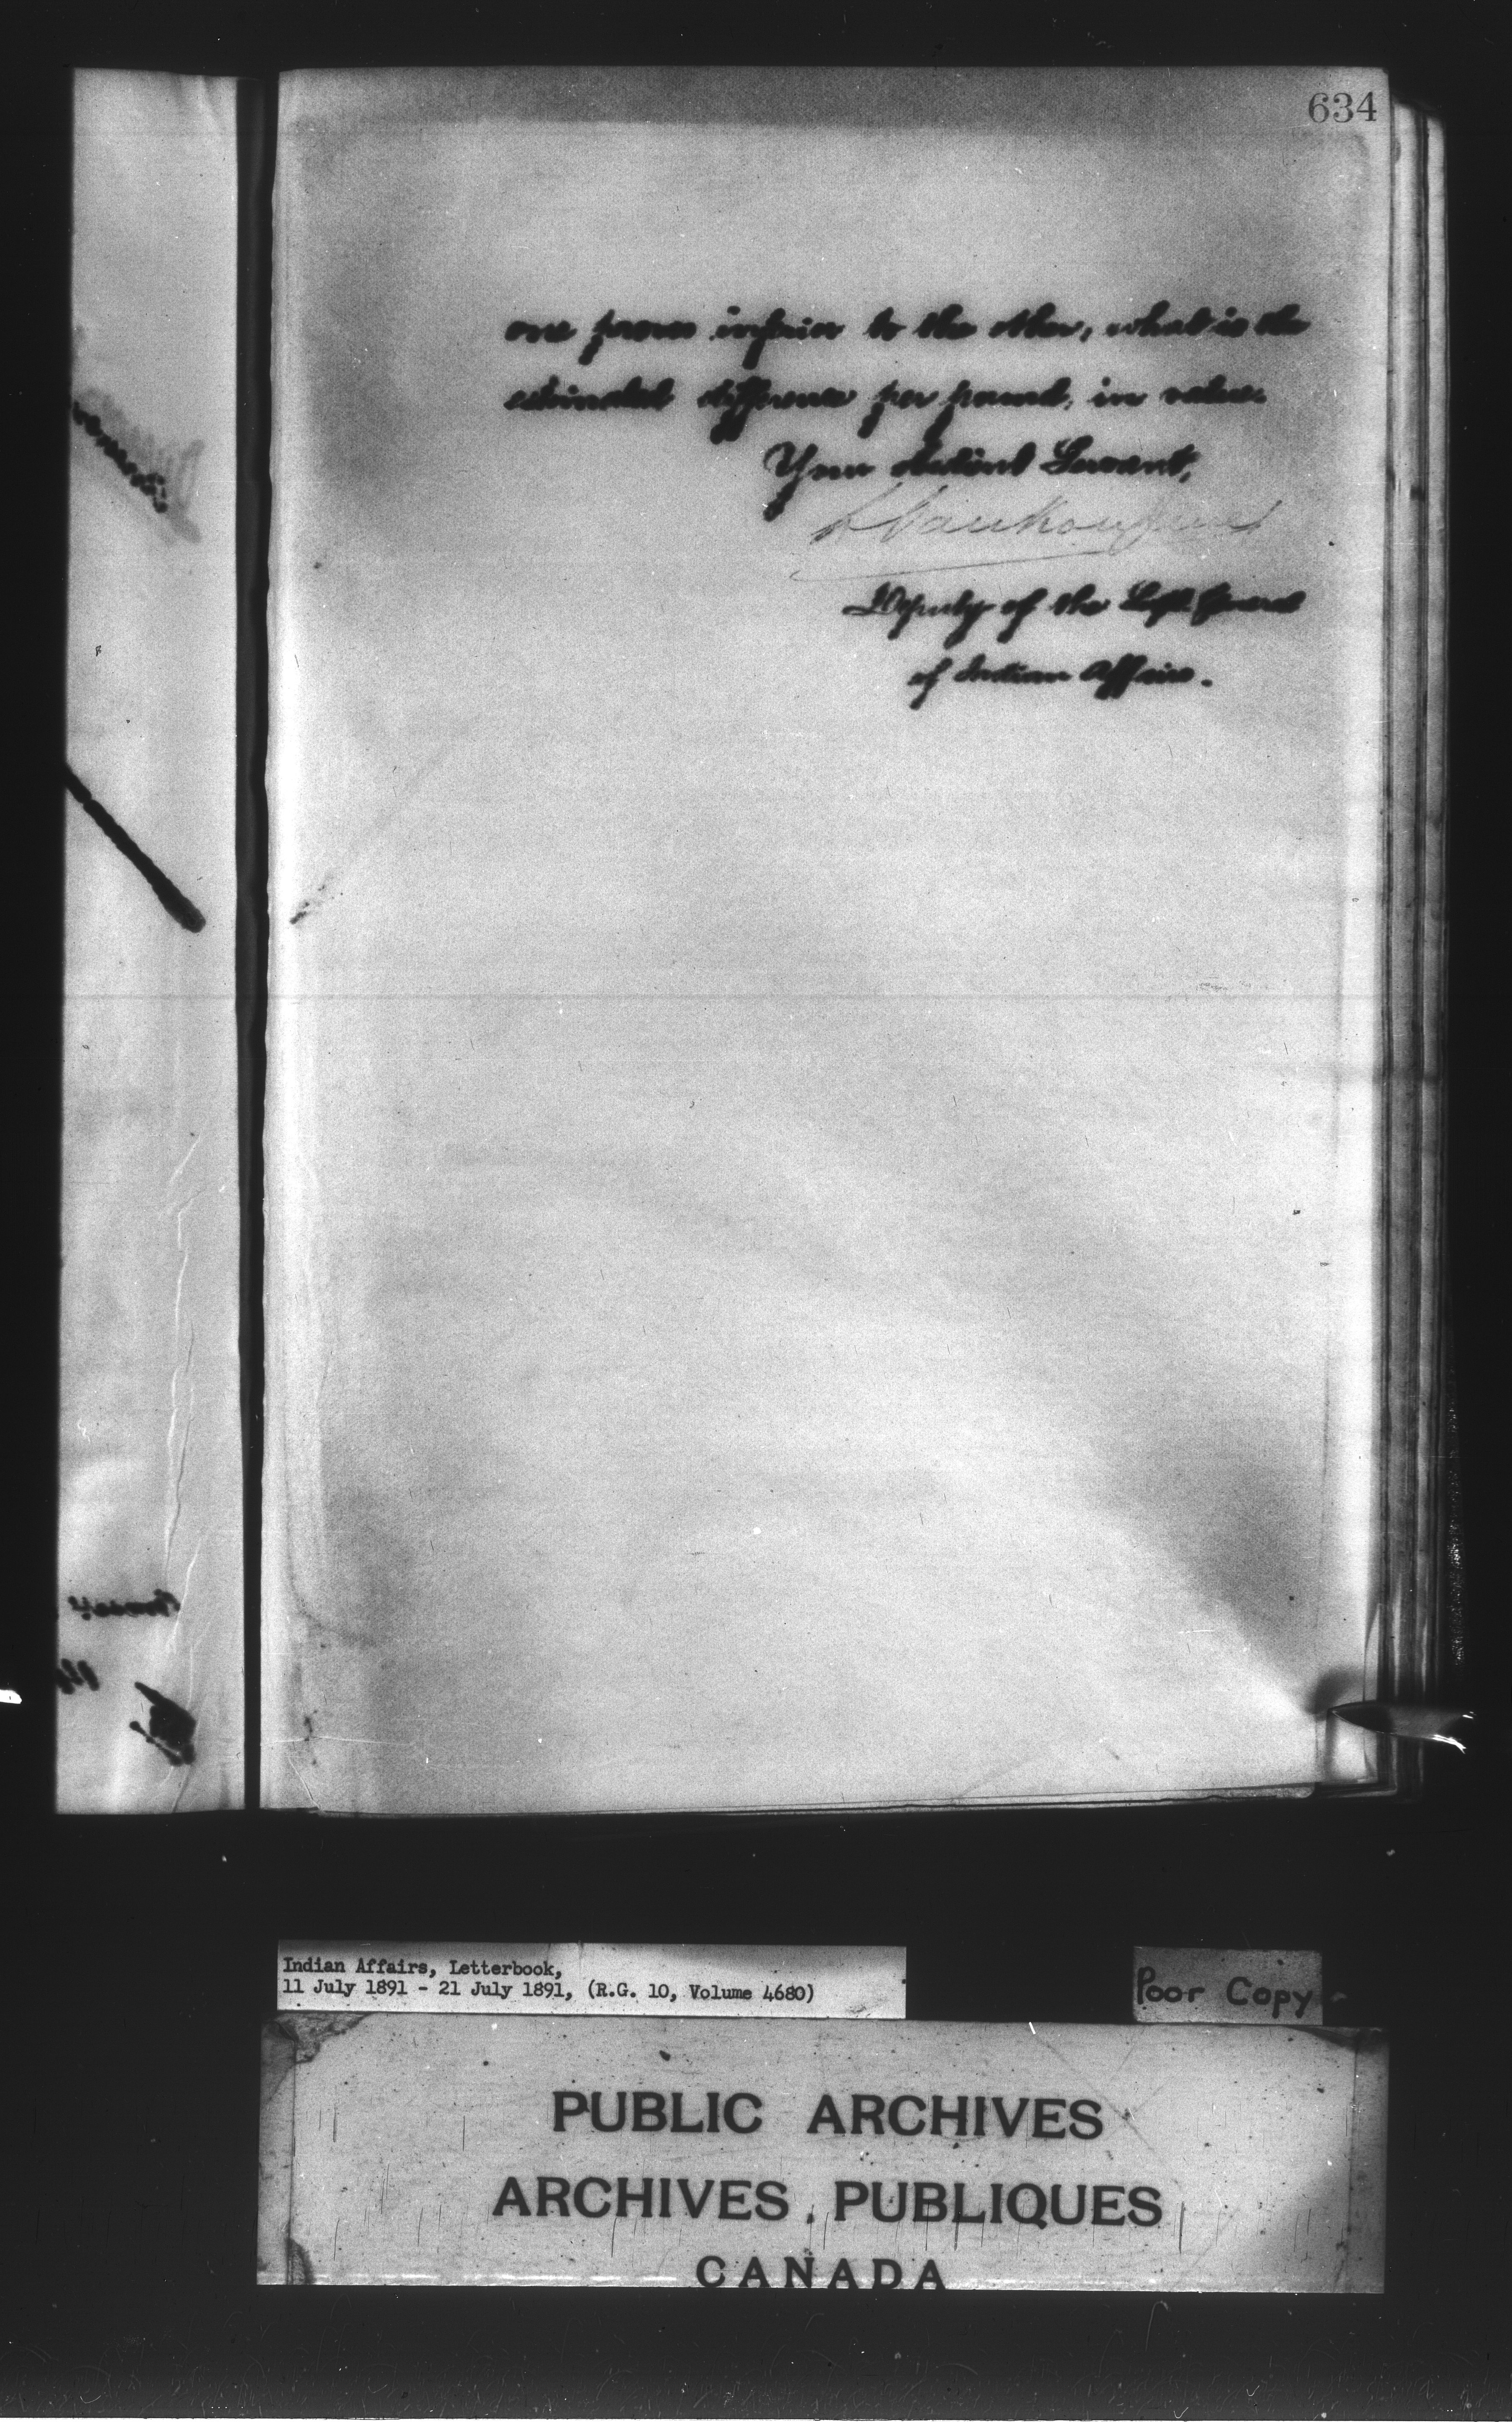 634
one proves inferior to the other, what is the
estimated difference per pound, in value.
Your obedient Servant,
L Vankoughnet
Deputy of the Supt. General
of Indian Affairs.
Indian Affairs, Letterbook,
11 July 1891 - 21 July 1891, (R.G. 10, Volume 4680)
Poor Copy
PUBLIC ARCHIVES
ARCHIVES PUBLIQUES
CANADA